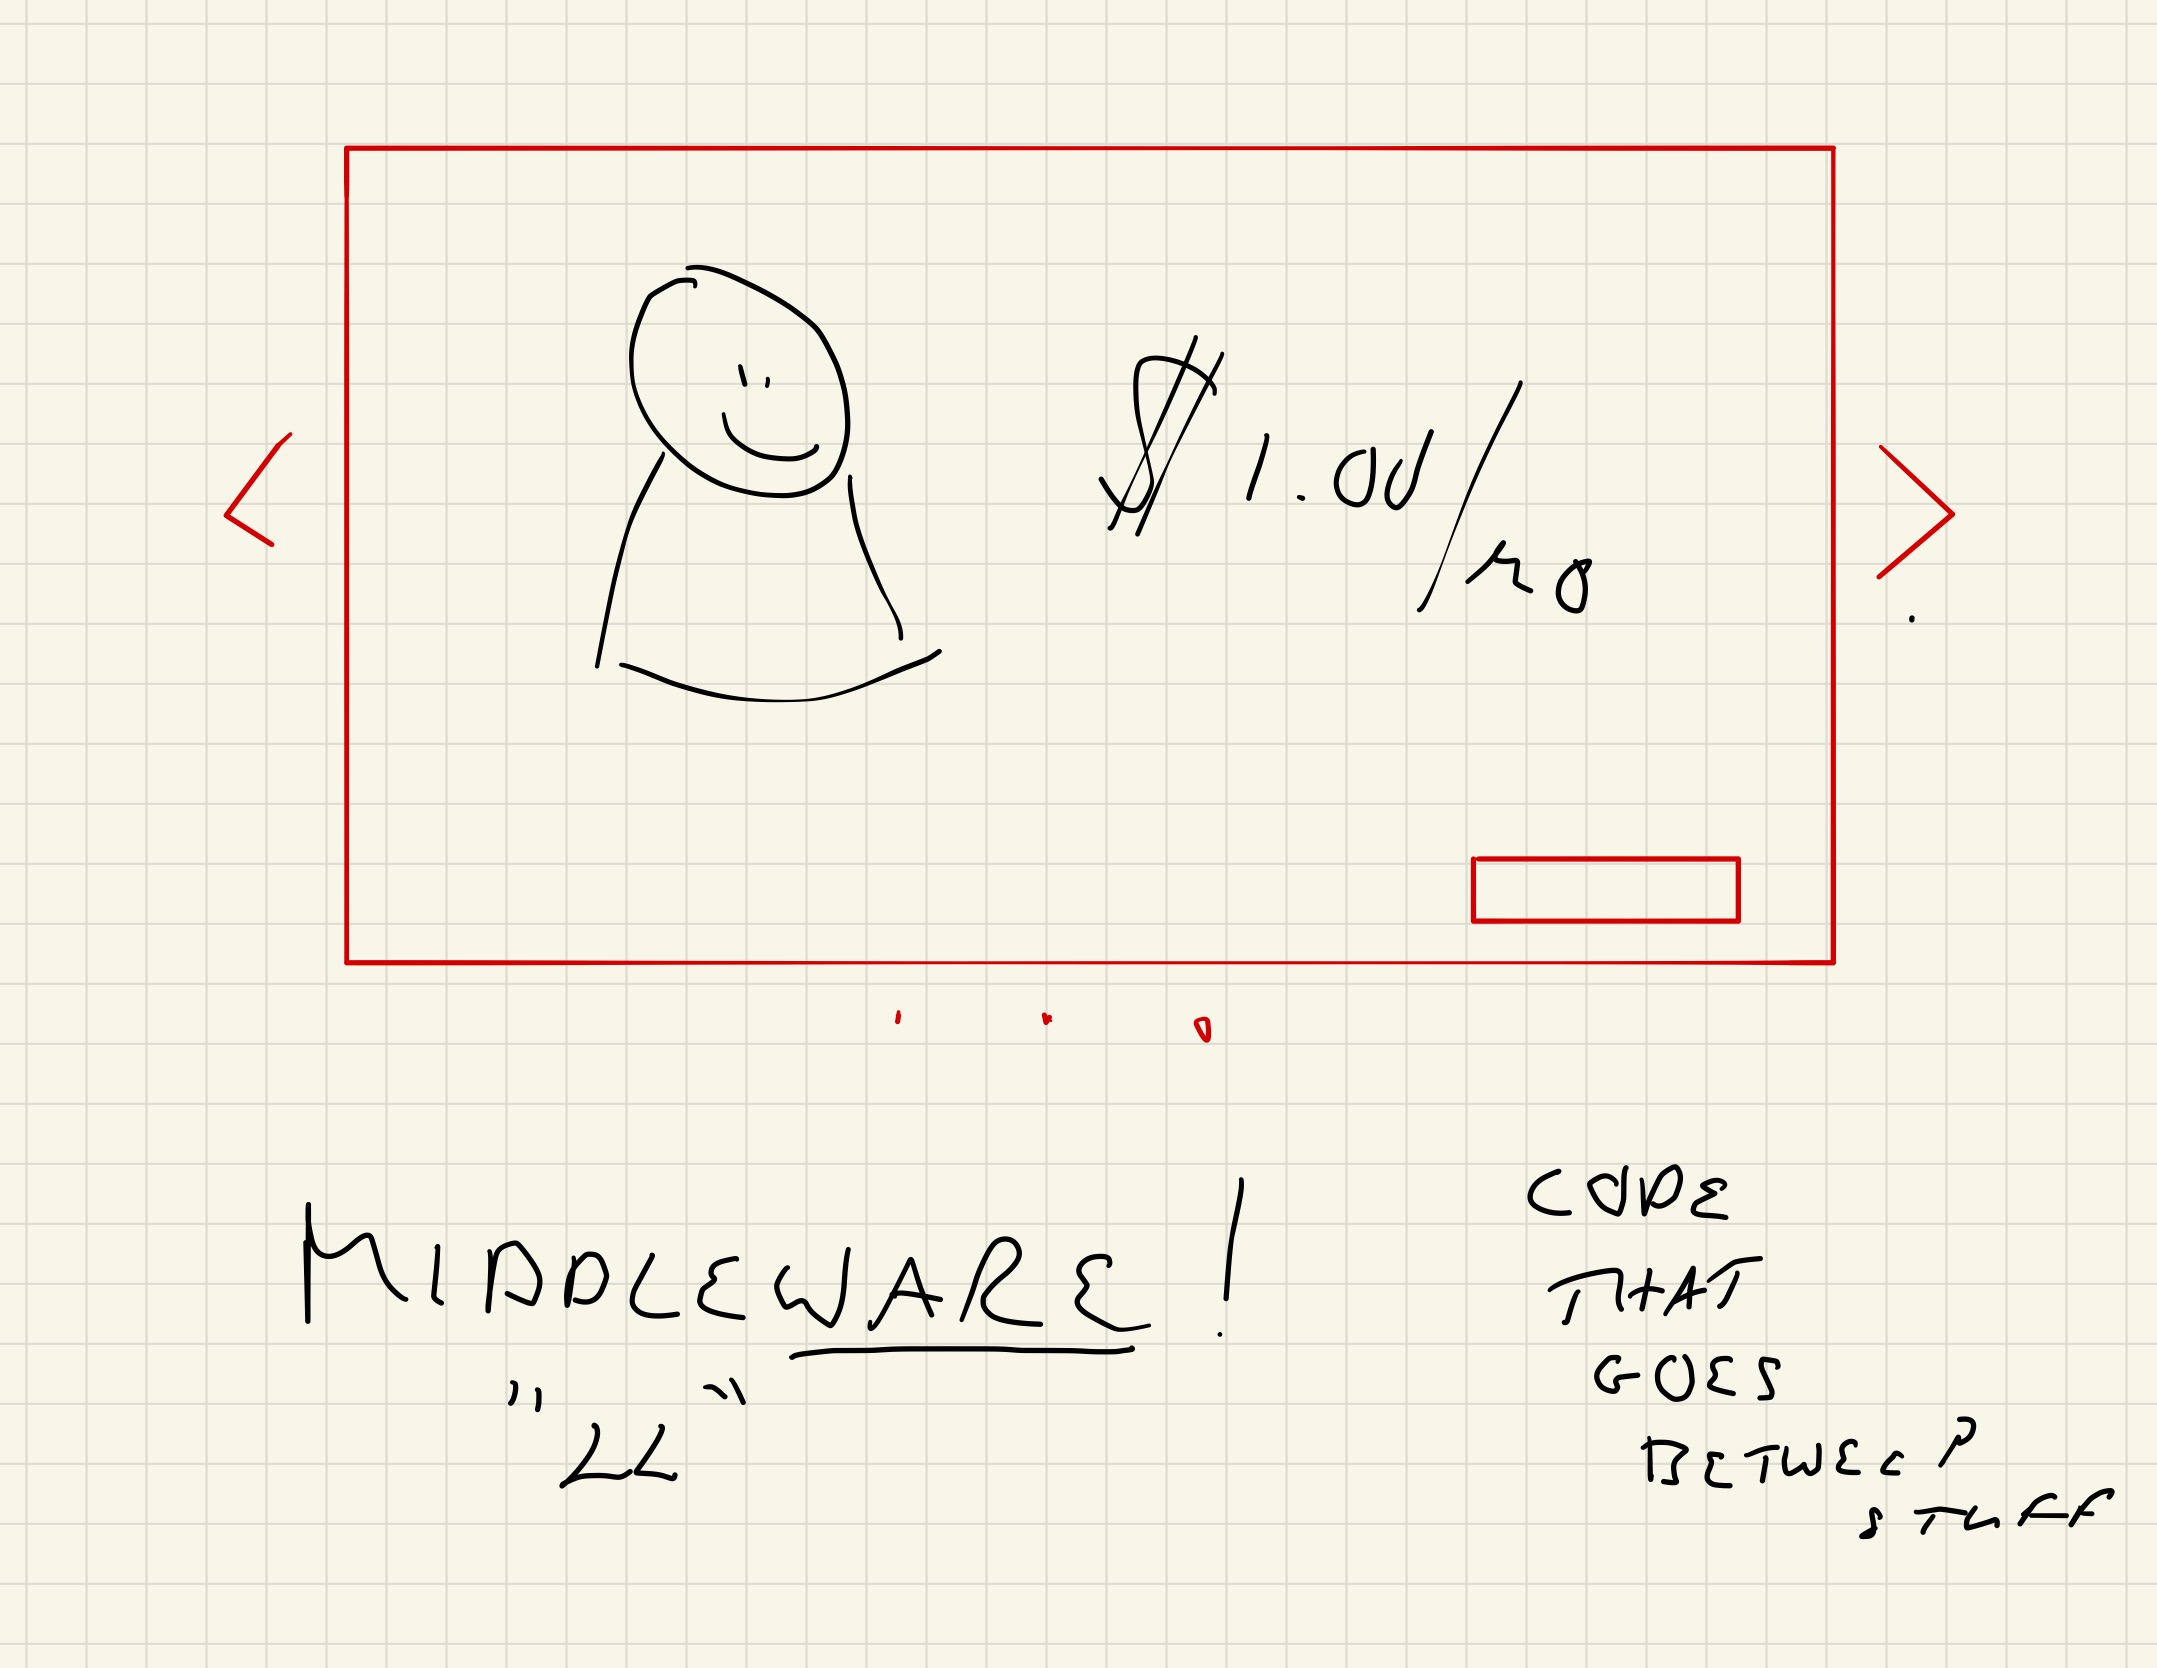 $1.00/mo
MIDDLEWARE!
"LL"
CODE
THAT
GOES
BETWEEN
STUFF